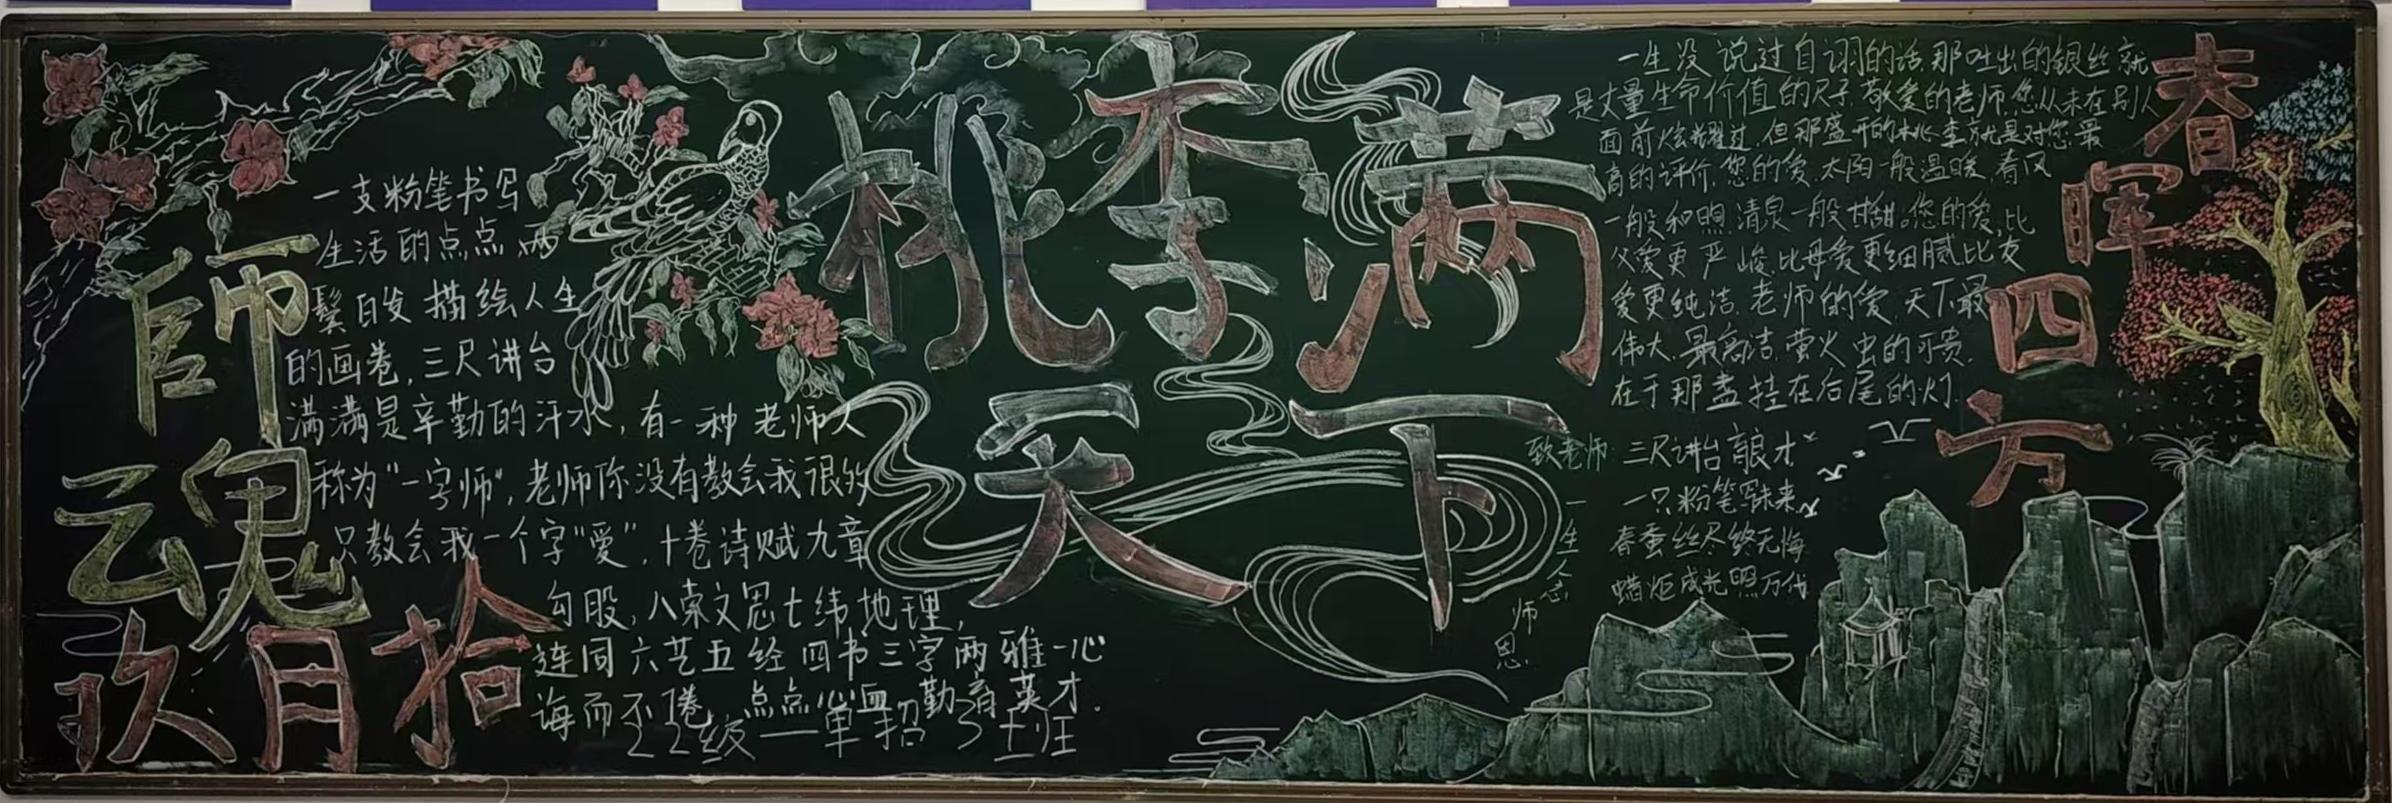 師魂
玖月拾
一支粉笔书写
生活的点点,两
鬓白发描绘人生
的画卷,三尺讲台
满满是辛勤的汗水,有一种老师人
称为"一字师",老师你没有教会我很多
只教会我一个字"爱",十卷诗赋九章
勾股,八索文思七纬地理,
连同六艺五经四书三字两雅一心
诲而不倦 点点心血勤育英才.
22级一单招
桃李满
天下
春晖四方
一生没说过自诩的话,那吐出的银丝就
是丈量生命价值的尺子,敬爱的老师,您从未在别人
面前炫耀过,但那盛开的桃李就是对您最
高的评价,您的爱,太阳一般温暖,春风
一般和煦,清泉一般甘甜。您的爱,比
父爱更严峻,比母爱更细腻,比友
爱更纯洁,老师的爱,天下最
伟大,最高洁,萤火虫的可贵,
在于那盏挂在后尾的灯.
致老师:
三尺讲台育良才
一只粉笔写未来
春蚕丝尽终无悔
蜡炬成光照万代
一生人念师恩.